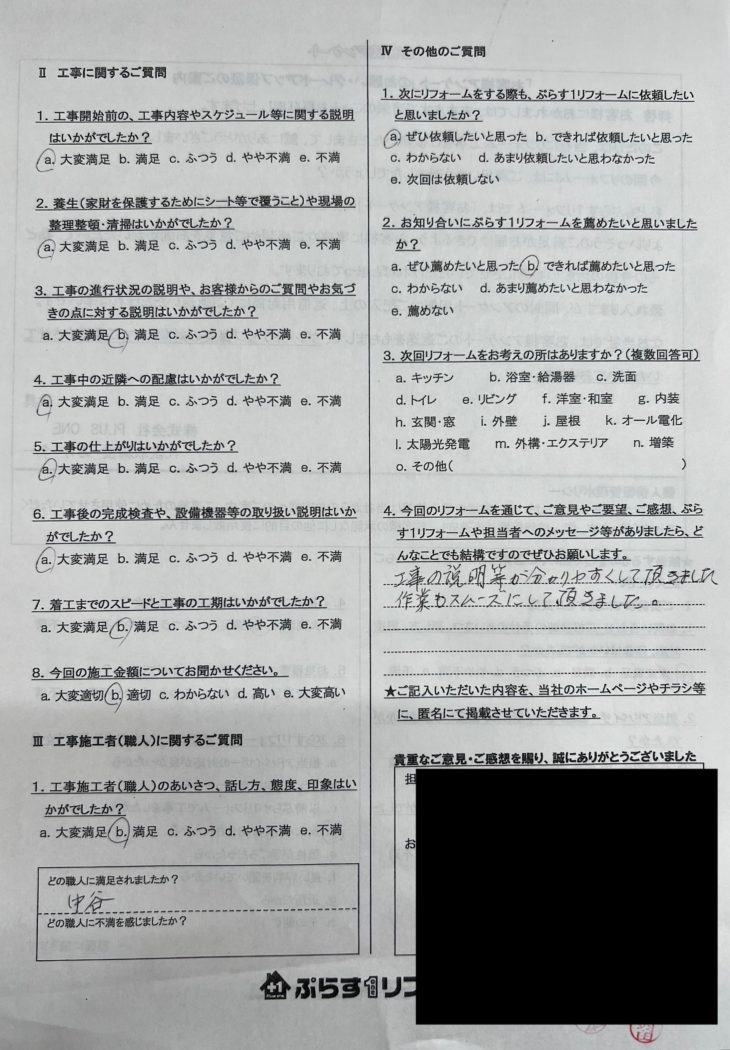 Ⅱ 工事に関するご質問
1. 工事開始前の、工事内容やスケジュール等に関する説明
はいかがでしたか？
a. 大変満足 b. 満足 c. ふつう d. やや不満 e. 不満
2. 養生(家財を保護するためにシート等で覆うこと)や現場の
整理整頓・清掃はいかがでしたか？
a. 大変満足 b. 満足 c. ふつう d. やや不満 e. 不満
3. 工事の進行状況の説明や、お客様からのご質問やお気づ
きの点に対する説明はいかがでしたか？
a. 大変満足 b. 満足 c. ふつう d. やや不満 e. 不満
4. 工事中の近隣への配慮はいかがでしたか？
a. 大変満足 b. 満足 c. ふつう d. やや不満 e. 不満
5. 工事の仕上がりはいかがでしたか？
a. 大変満足 b. 満足 c. ふつう d. やや不満 e. 不満
6. 工事後の完成検査や、設備機器等の取り扱い説明はいか
がでしたか？
a. 大変満足 b. 満足 c. ふつう d. やや不満 e. 不満
7. 着工までのスピードと工事の工期はいかがでしたか？
a. 大変満足 b. 満足 c. ふつう d. やや不満 e. 不満
8. 今回の施工金額についてお聞かせください。
a. 大変適切 b. 適切 c. わからない d. 高い e. 大変高い
Ⅲ 工事施工者(職人)に関するご質問
1. 工事施工者(職人)のあいさつ、話し方、態度、印象はい
かがでしたか？
a. 大変満足 b. 満足 c. ふつう d. やや不満 e. 不満
どの職人に満足されましたか？
中谷
どの職人に不満を感じましたか？
Ⅳ その他のご質問
1. 次にリフォームをする際も、ぷらす1リフォームに依頼したい
と思いましたか？
a. ぜひ依頼したいと思った b. できれば依頼したいと思った
c. わからない d. あまり依頼したいと思わなかった
e. 次回は依頼しない
2. お知り合いにぷらす1リフォームを薦めたいと思いました
か？
a. ぜひ薦めたいと思った b. できれば薦めたいと思った
c. わからない d. あまり薦めたいと思わなかった
e. 薦めない
3. 次回リフォームをお考えの所はありますか？(複数回答可)
a. キッチン b. 浴室・給湯器 c. 洗面
d. トイレ e. リビング f. 洋室・和室 g. 内装
h. 玄関・窓 i. 外壁 j. 屋根 k. オール電化
l. 太陽光発電 m. 外構・エクステリア n. 増築
o. その他( )
4. 今回のリフォームを通じて、ご意見やご要望、ご感想、ぷら
す1リフォームや担当者へのメッセージ等がありましたら、ど
んなことでも結構ですのでぜひお願いします。
工事の説明等が分かりやすくして頂きました
作業もスムーズにして頂きました。
★ご記入いただいた内容を、当社のホームページやチラシ等
に、匿名にて掲載させていただきます。
貴重なご意見・ご感想を賜り、誠にありがとうございました
担
お
ぷらす1リフ